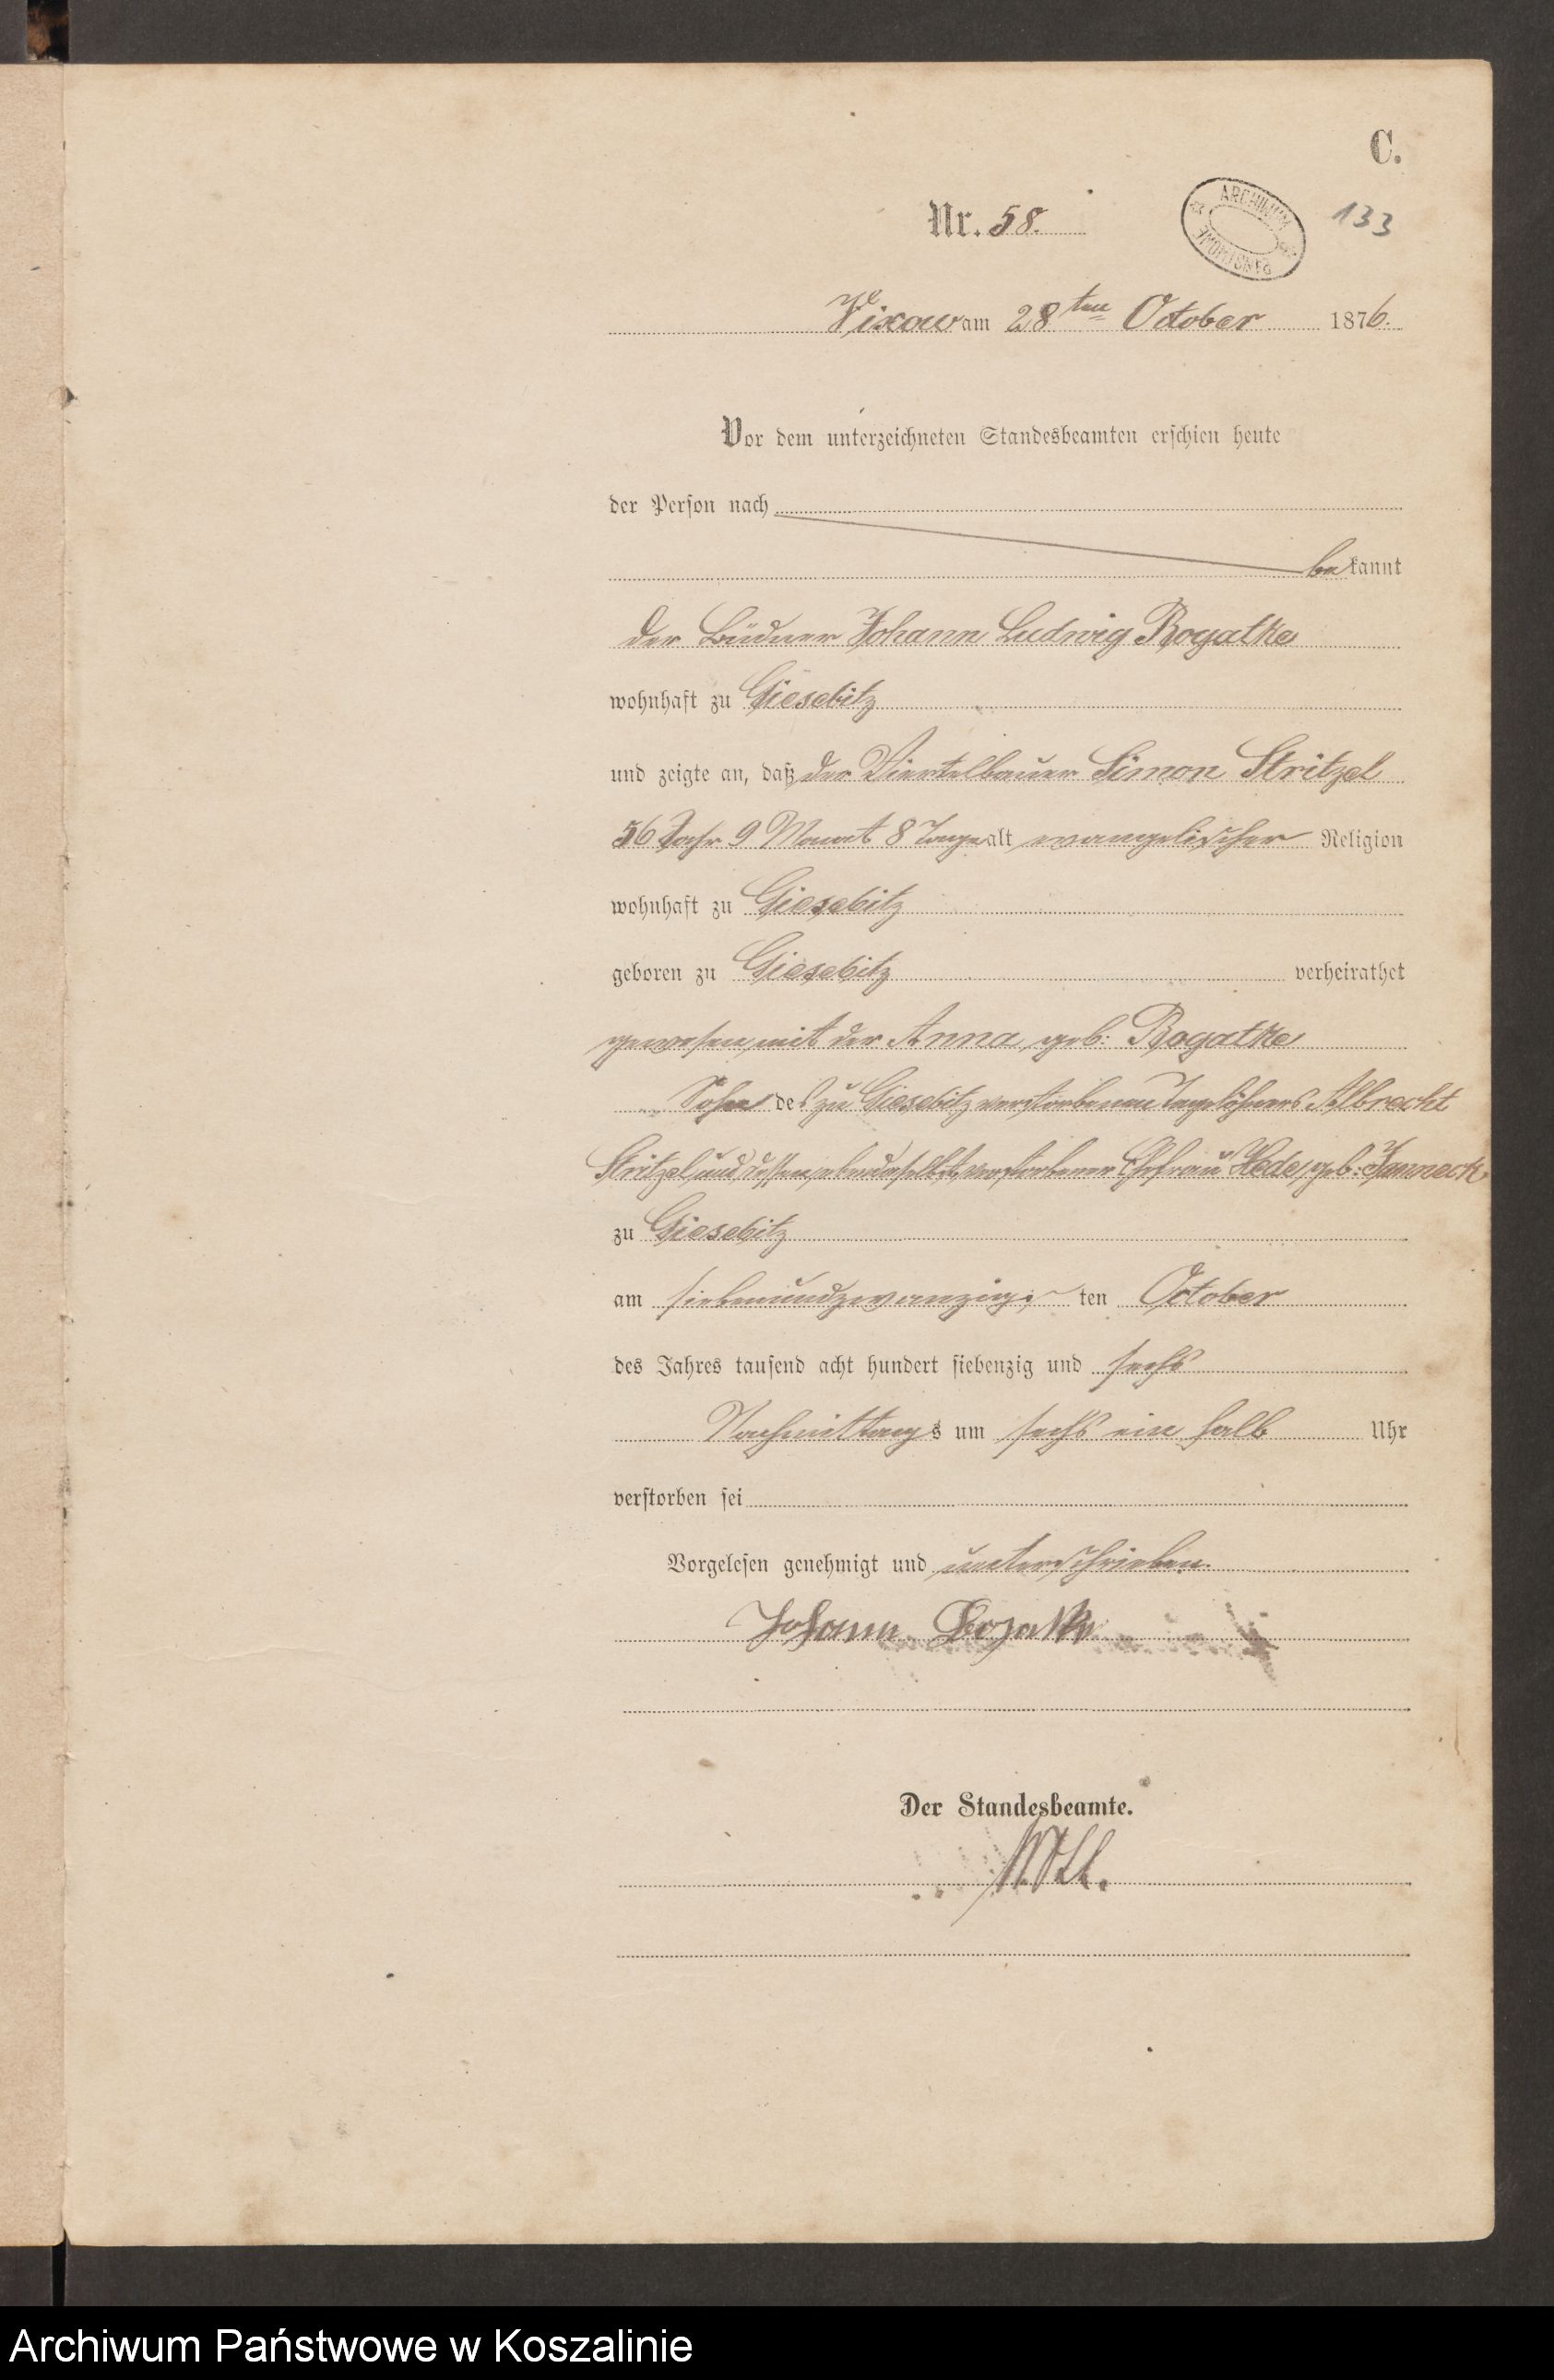 C.
Nr. 58.
ARCHIWUM PAŃSTWOWE
133
Vixow am 28ten October 1876.
Vor dem unterzeichneten Standesbeamten erschien heute
der Person nach
bekannt
der Büdner Johann Ludwig Rogatke
wohnhaft zu Giesebitz
und zeigte an, daß der Viertelbauer Simon Stritzel
56 Jahr 9 Monat 8 Tage alt evangelischer Religion
wohnhaft zu Giesebitz
geboren zu Giesebitz verheirathet
gewesen mit der Anna, geb: Rogatke
Sohn des zu Giesebitz verstorbenen Tagelöhners Albrecht
Stritzel und dessen ebendaselbst verstorbener Ehefrau Hede, geb: Janneck
zu Giesebitz
am siebenundzwanzigsten October
des Jahres tausend acht hundert siebenzig und sechs
Nachmittags um sechs ein halb Uhr
verstorben sei
Vorgelesen genehmigt und unterschrieben.
Johann Rogatke
Der Standesbeamte.
Archiwum Państwowe w Koszalinie